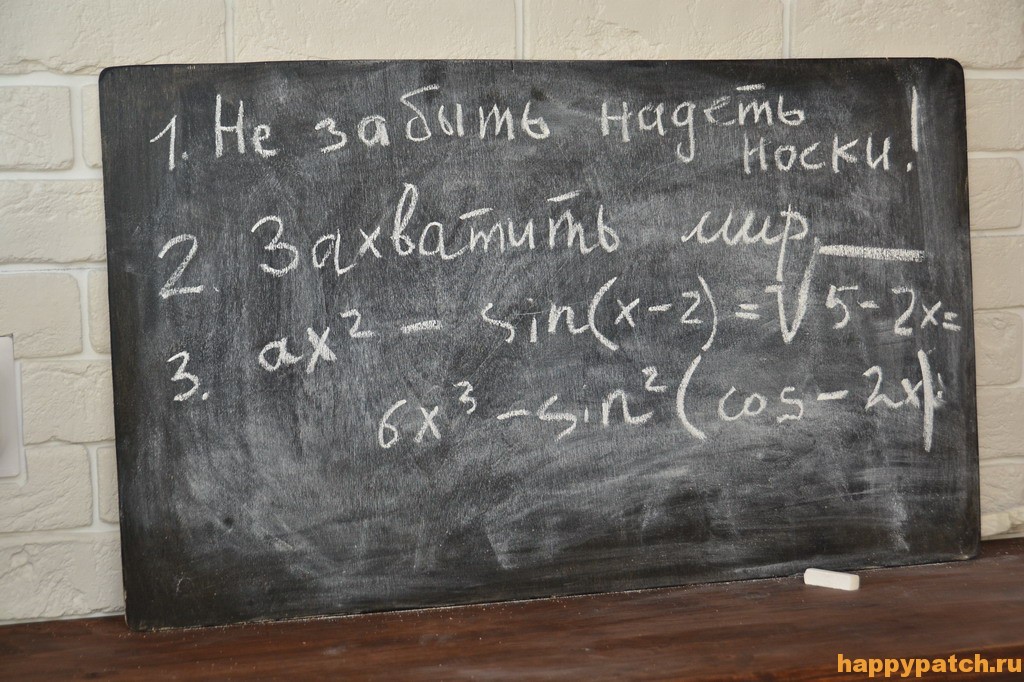 1. Не забыть надеть
носки!
2. Захватить мир
3. ax² - sin(x-2) = √5-2x =
6x³ - sin²(cos - 2x)
happypatch.ru